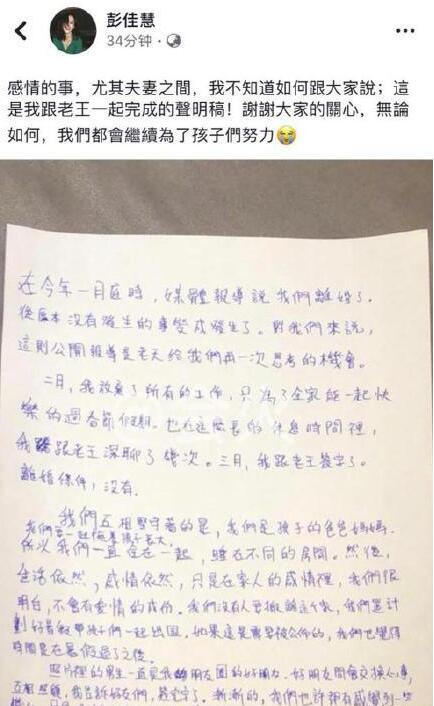 彭佳慧
34分钟
感情的事，尤其夫妻之間，我不知道如何跟大家說；這
是我跟老王一起完成的聲明稿！謝謝大家的關心，無論
如何，我們都會繼續為了孩子們努力😭
在今年一月底時，媒體報導說我們離婚了。
從原本沒有發生的事變成發生了。對我們來說，
這則公開報導是老天給我們再一次思考的機會。
二月，我放棄了所有的工作，只為了全家能一起快
樂的過春節假期。也在這長長的休息時間裡，
我跟老王深聊了幾次。三月，我跟老王簽字了。
離婚條件，沒有。
我們互相堅守著的是，我們是孩子的爸爸媽媽，
我們要一起陪著孩子長大，
所以我們一直住在一起，睡在不同的房間。然後，
生活依然，感情依然，只是在家人的感情裡，我們很
明白，不會有愛情的成份。我們沒有人要搬離這個家，我們還計
劃好暑假帶孩子們一起出國。如果這是需要被公佈的，我們也覺得
時間是在暑假過了之後。
照片裡的男生一直是我朋友圈的好朋友。好朋友間會交換心事，
互相照顧，我告訴好友們，簽字了。漸漸的，我們也許都有感覺到一些